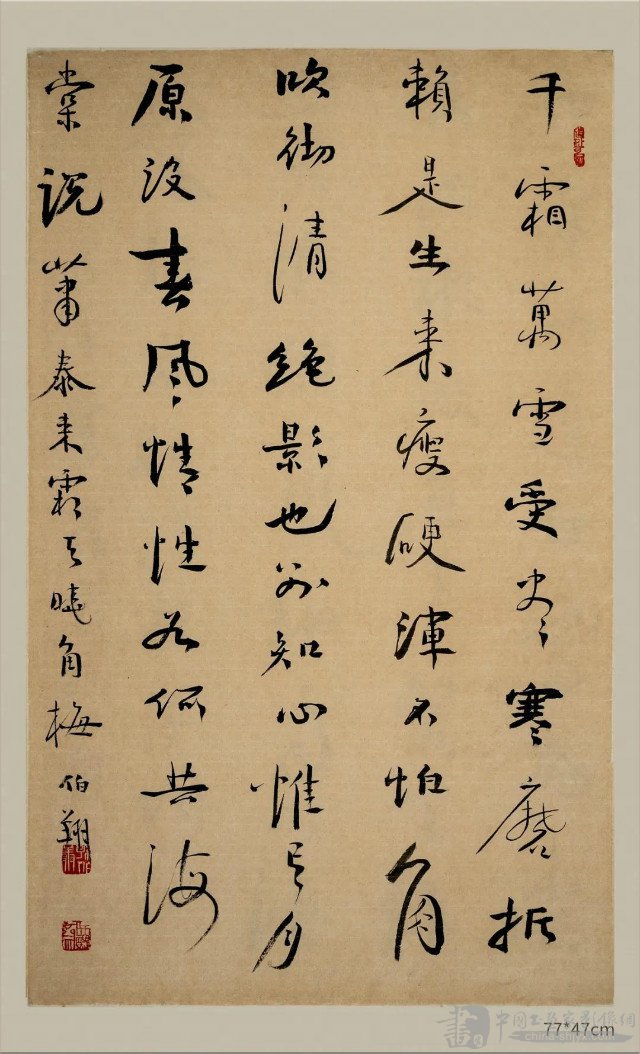 千霜萬雪受尽寒磨折
賴是生来瘦硬渾不怕角
吹徹清絶影也别知心惟有月
原没春風情性如何共海
棠説蕭泰来霜天曉角梅伯翔
77*47cm